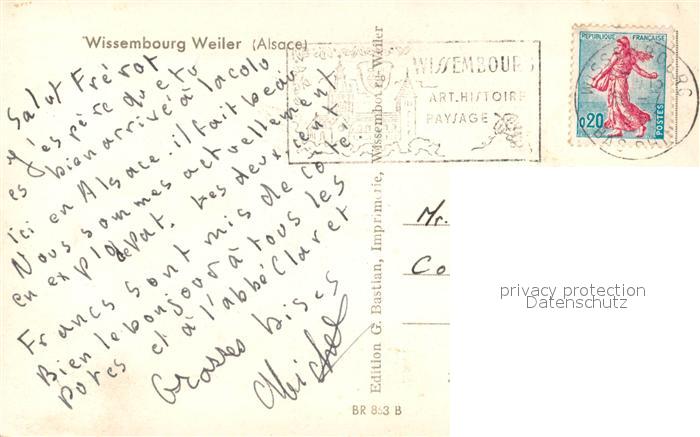 Wissembourg Weiler (Alsace)
Salut Frérot
J'espère que tu
es bien arrivé à la colo.
Ici en Alsace il fait beau
Nous sommes actuellement
en explo de pat. Les deux cent
Francs sont mis de coté.
Bien le bonjour à tous les
potes et à l'abbé Claret
Grosses bises
Michel
Edition G. Bastian, Imprimerie, Wissembourg-Weiler
BR 853 B
WISSEMBOURG
ART.HISTOIRE
PAYSAGE
REPUBLIQUE FRANÇAISE
0,20
POSTES
Mr.
Co
privacy protection
Datenschutz